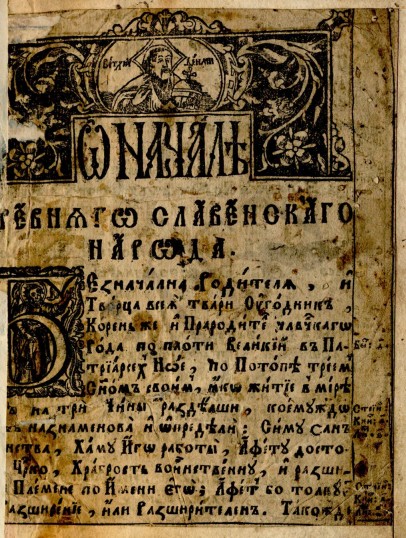 ВЕТХІИ ДЕНМИ
Ѡ НАЧАЛѢ
РЕВНЯГѠ СЛАВЕНСКАГО
НАРѠДА.
Безначална Родителя, и
Творца всея твари Оугодник,
Корень же и Прародите члвчкагѡ
Рода по плоти Великій в Па-
тріарсѣх Ное, по Потопѣ трем
Сном своим, якѡ житіе в мірѣ
на три чины раздѣши, коемуждѡ
назнаменова и ѡпредѣли: Симу сан
нства, Хаму Иго работы, Афету досто-
Храбрость воинственну, и разши-
Племене по Имени егѡ: Афет бо толку
азширеніе, или Разширителен. Такожде